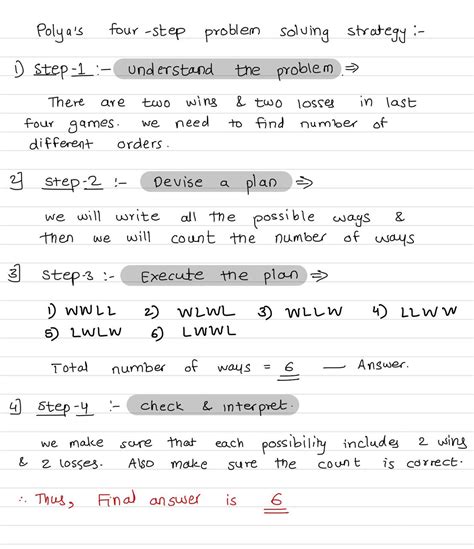 Polya's four-step problem solving strategy :-
1) Step-1 :- understand the problem ⇒
There are two wins & two losses in last
four games. we need to find number of
different orders.
2] step-2 :- Devise a plan ⇒
we will write all the possible ways &
then we will count the number of ways
3] Step-3 :- Execute the plan ⇒
1) WWLL 2) WLWL 3) WLLW 4) LLWW
5) LWLW 6) LWWL
Total number of ways = 6 — Answer.
4] Step-4 :- check & interpret.
we make sure that each possibility includes 2 wins
& 2 losses. Also make sure the count is correct.
∴ Thus, Final answer is 6